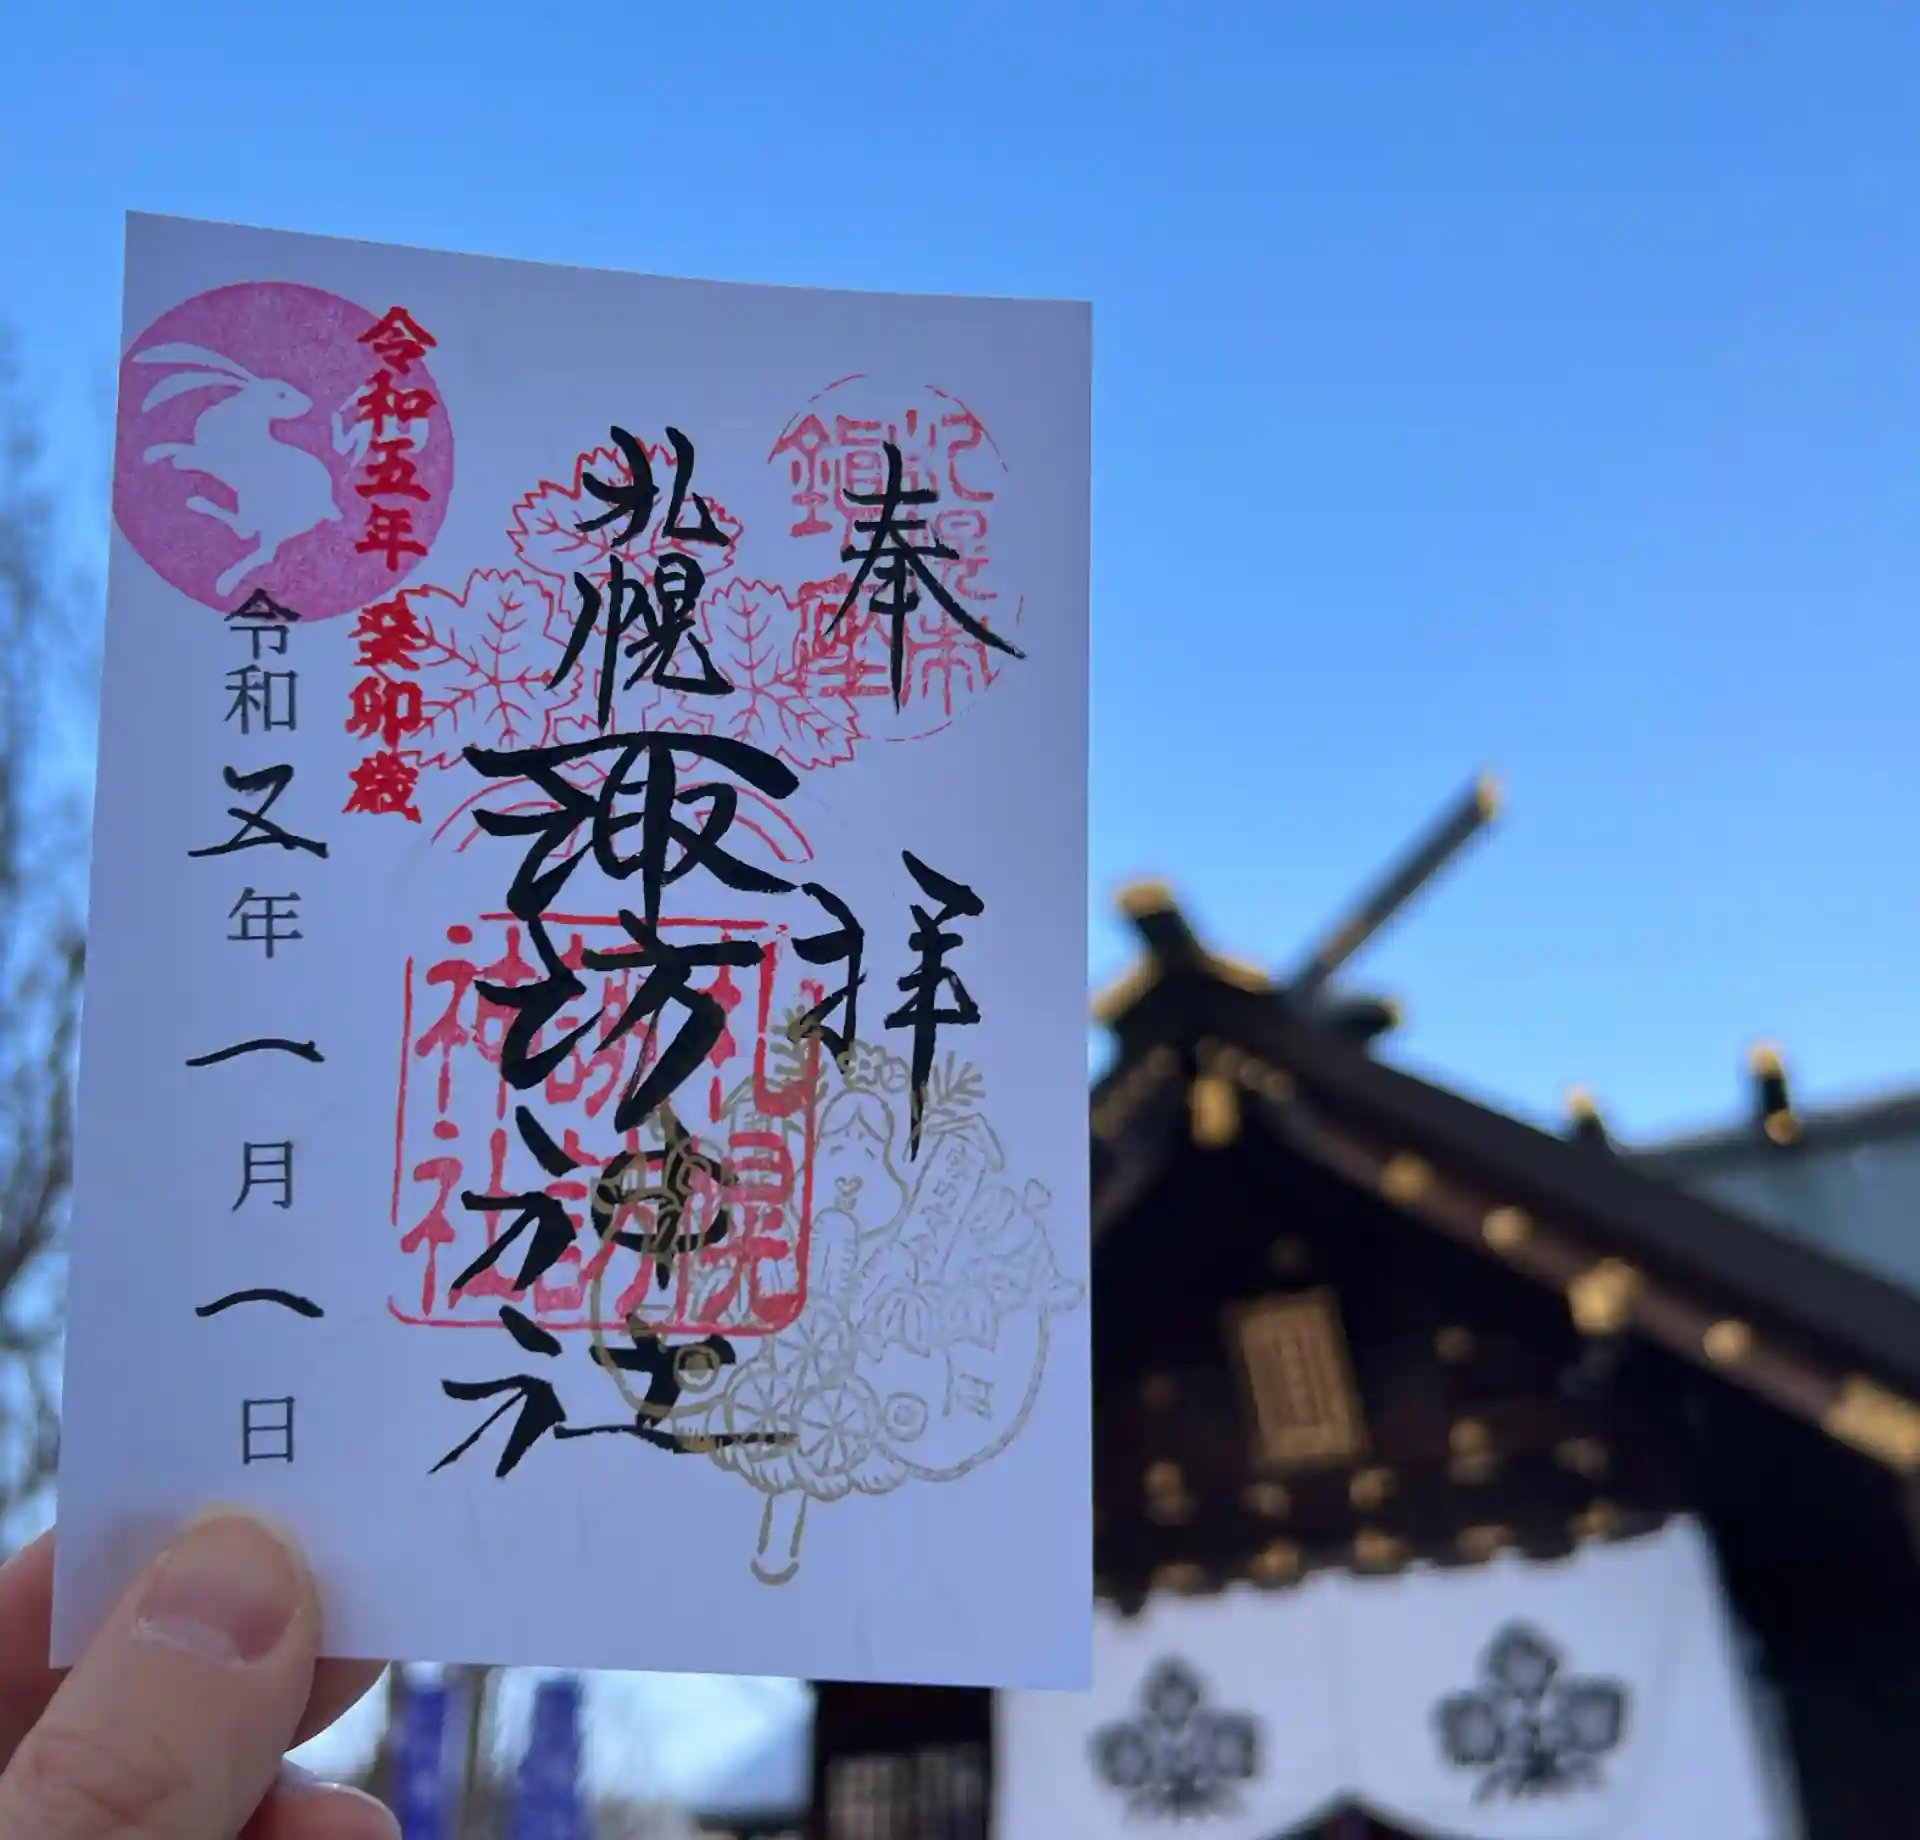 奉拝
札幌諏訪神社
札幌市鎮座
札幌諏訪神社
令和五年 癸卯歳
令和五年一月一日